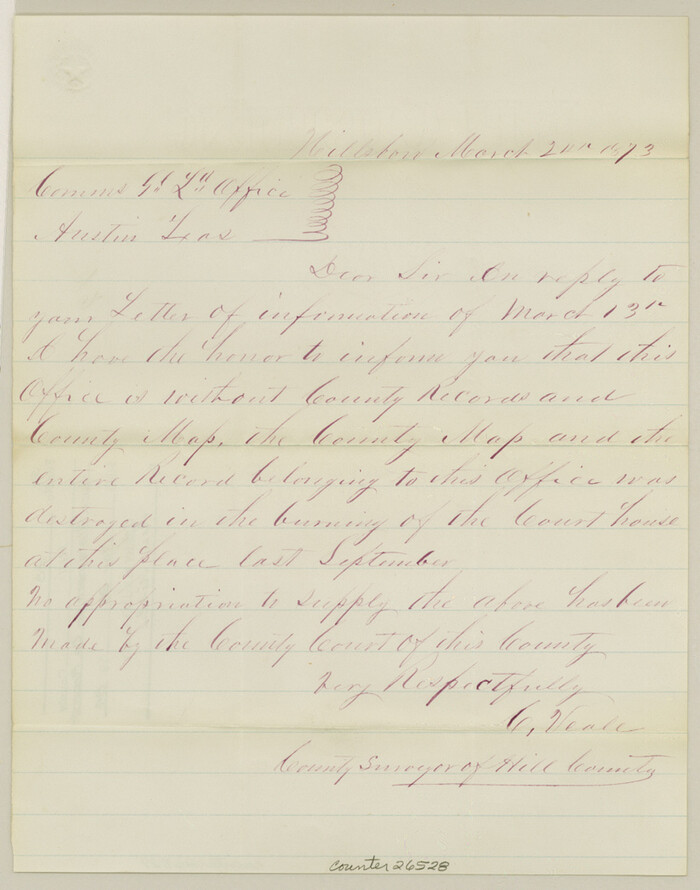 Hillsboro March 2nd 1873
Comms Gl Ld Office
Austin Texas
Dear Sir In reply to
your Letter of information of March 13th
I have the honor to informe you that this
Office is without County Records and
County Map, the County Map and the
entire Record belonging to this Office was
destroyed in the burning of the Court house
at this place last September
No appropriation to supply the above has been
made by the County Court of this County
Very Respectfully
C, Veale
County Surveyor of Hill County
counter 26528